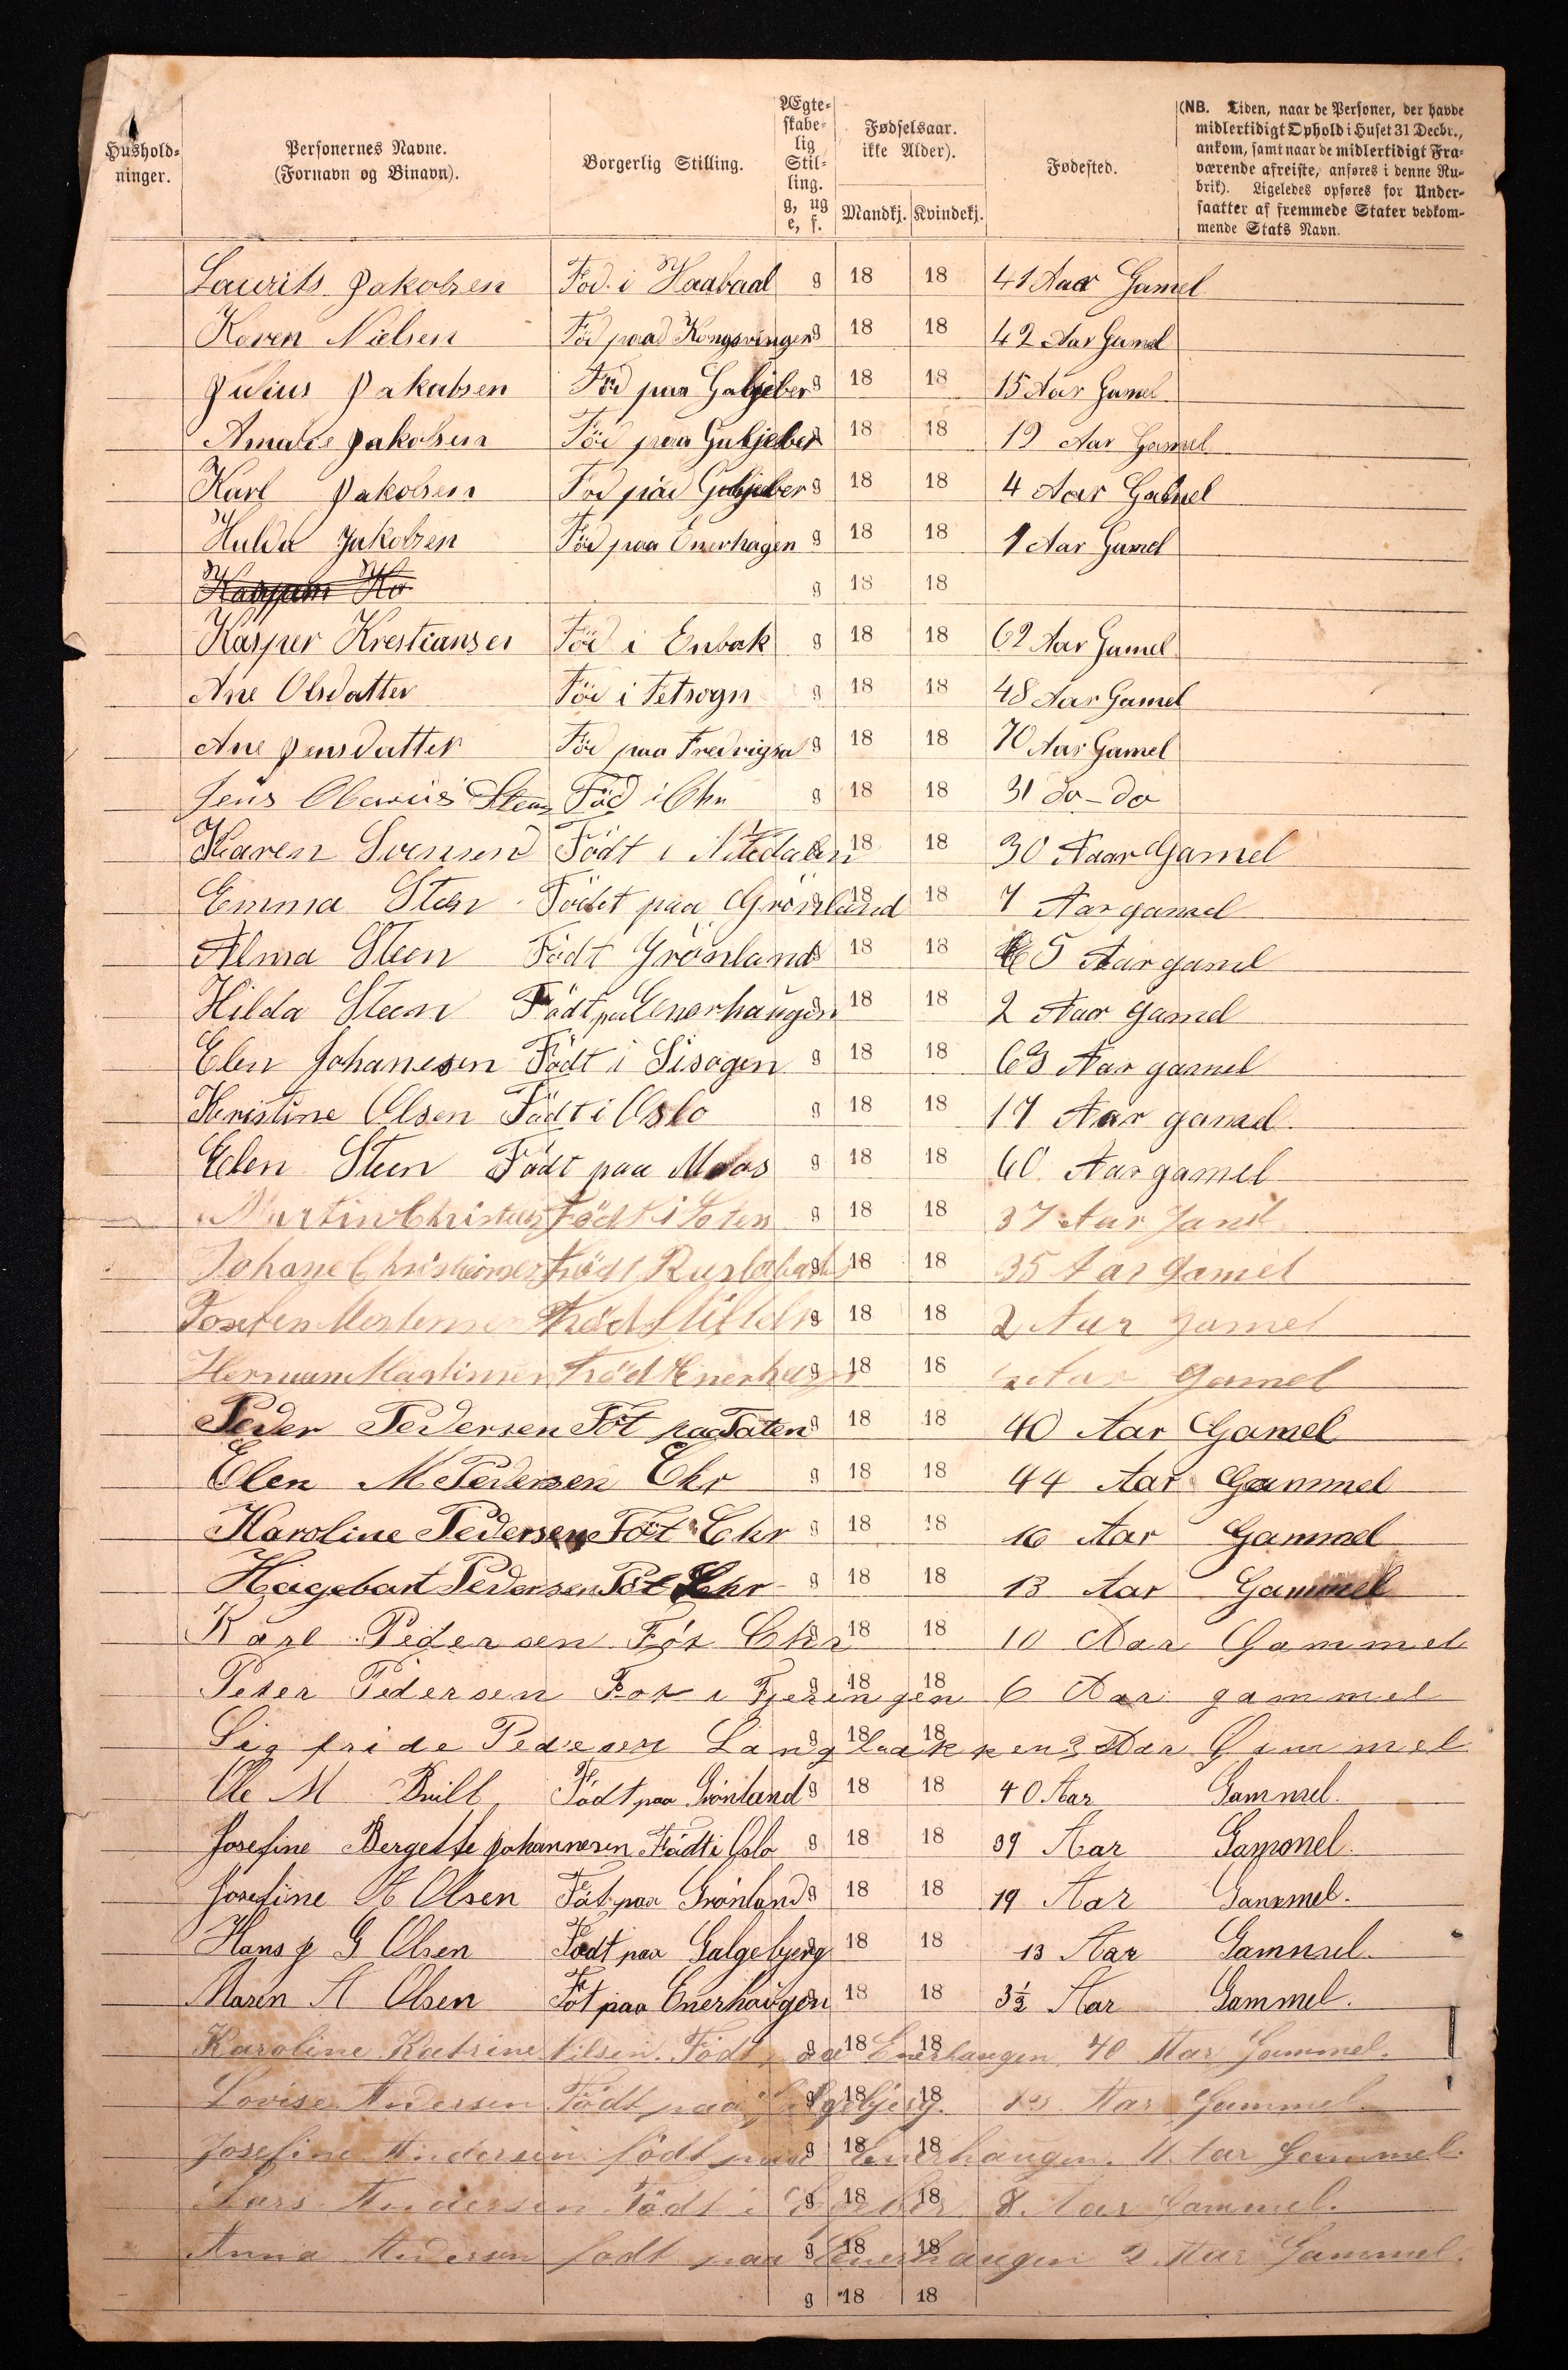 Hushold-
ninger.
Personernes Navne.
(Fornavn og Binavn).
Borgerlig Stilling.
Ægte-
skabe-
lig
Stil-
ling.
g, ug
e, f.
Fødselsaar.
ikke Alder).
Mandkj. Kvindekj.
Fødested.
(NB. Tiden, naar de Personer, der havde
midlertidigt Ophold i Huset 31 Decbr.,
ankom, samt naar de midlertidigt Fra-
værende afreiste, anføres i denne Ru-
brik). Ligeledes opføres for Under-
saatter af fremmede Stater vedkom-
mende Stats Navn.
Laurits Jakobsen Fød i Haabaal g 18 18 41 Aar Gamel
Karen Nielsen Föd paa Kongsvinger g 18 18 42 Aar Gamel
Julius Jakobsen Föd paa Galjeber g 18 18 15 Aar Gamel
Amalie Jakobsen Föd paa Galjeber 18 18 12 Aar Gamel
Karl Jakobsen Föd paa Galjeber g 18 18 4 Aar Gamel
Hulda Jakobsen Föd paa Enerhagen g 18 18 1 Aar Gamel
g 18 18
Kasper Krestiansen Föd i Enbak g 18 18 62 Aar Gamel
Ane Olsdatter Föd i Fetsogn g 18 18 48 Aar Gamel
Ane Jensdatter Föd paa Fredrigsa g 18 18 70 Aar Gamel
Jens Olavus Steen Föd i Chr g 18 18 31 do - do
Karen Svensen Födt i Nitedalen 18 18 30 Aaar Gamel
Emma Sten Födet paa Grönland 18 18 7 Aar gamel
Alma Steen Födt Grönland 18 18 5 Aar gamel
Hilda Steen Födt paa Enerhaugen 18 18 2 Aar gamel
Elen Johanesen Födt i Sisogen g 18 18 63 Aar gamel
Kristine Olsen Födt i Oslo g 18 18 17 Aar gamel
Elen Steen Födt paa Moss g 18 18 60 Aar gamel
Martin Födt i Toten g 18 18 37 Aar
Johane Födt 18 18 35 Aar Gamel
Födt 18 18 2 Aar Gamel
Herman Martinsen Född Enerhagen 18 18 Aar Gamel
Peder Pedersen Föt paa Toten g 18 18 40 Aar Gamel
Elen M Pedersen Chr g 18 18 44 Aar Gammel
Karoline Pedersen Föt Chr g 18 18 16 Aar Gammel
Hagebart Pedersen Föt Chr g 18 18 13 Aar Gammel
Karl Pedersen Föt Chr 18 18 10 Aar Gammel
Peter Pedersen Fot i Fjeringen 18 18 6 Aar gammel
Sigfride Pedesen Langlaakken 18 18 3 Aar Gammel
Ole M Brill Födt paa Grönland g 18 18 40 Aar Gammel.
Josefine Bergette Johannesen Födt i Oslo g 18 18 39 Aar Gammel.
Josefine A Olsen Föt paa Grönland g 18 18 19 Aar Gammel.
Hans J G Olsen Födt paa Galgebjerg 18 18 13 Aar Gammel.
Maren A Olsen Föt paa Enerhaugen 18 18 3½ Aar Gammel.
Karoline Katrine Nilsen. Födt paa Enerhaugen 18 18 40 Aar Gammel.
Lovise Andersen Födt paa Galgebjerg. 18 18 13 Aar Gammel.
Josefine Andersen födt paa Enerhaugen. g 18 18 11 Aar Gammel.
Lars Andersen Födt i g 18 18 8. Aar Gammel.
Anna Andersen födt paa Enerhaugen g 18 18 2 Aar Gammel.
g 18 18